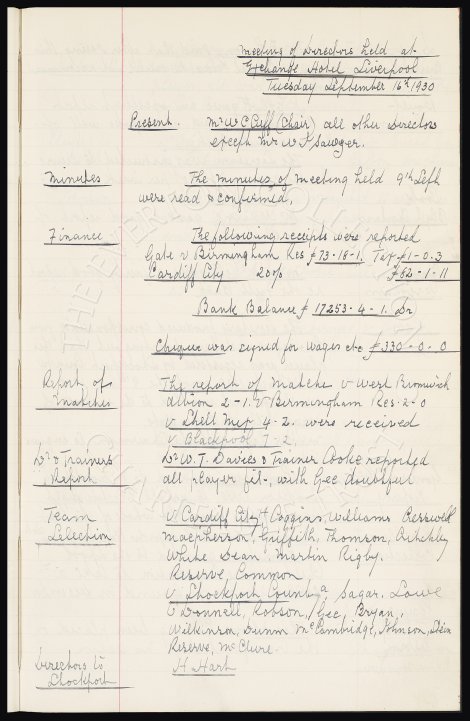 Meeting of Directors held at
Exchange Hotel Liverpool
Tuesday September 16th 1930
Present. Mr W C Cuff (Chair) all other Directors
except Mr W F Sawyer.
Minutes The minutes of meeting held 9th Sept
were read & confirmed.
Finance The following receipts were reported
Gate v Birmingham Res £73-18-1, Tax £1-0.3
Cardiff City 20% £62-1-11
Bank Balance £17253-4-1. Dr
Cheque was signed for wages etc £330-0-0
Report of The report of matches v West Bromwich
Matches Albion 2-1. v Birmingham Res. 2-0
v Shell Mex 4-2. were received
v Blackpool 7-2.
Dr & Trainers Dr W. T. Davies & Trainer Cooke reported
Report all player fit, with Gee doubtful
Team v Cardiff City H Coggins, Williams Cresswell
Selection Macpherson, Griffith, Thomson, Critchley
White Dean, Martin Rigby.
Reserve, Common
v Stockport County a Sagar. Lowe
O'Donnell, Robson, Gee, Bryan,
Wilkinson, Dunn McCambridge, Johnson, Stein
Reserve, McClure.
Directors to H Hart
Stockport